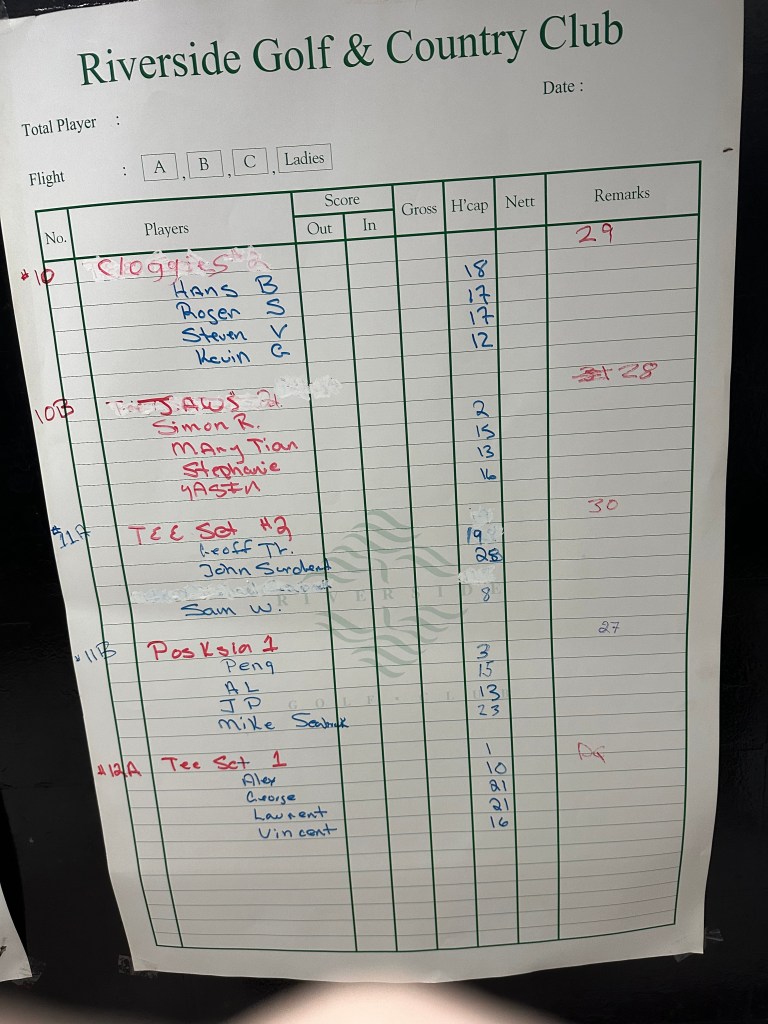 Riverside Golf & Country Club
Date :
Total Player :
Flight : A , B , C , Ladies
No. Players Score Out In Gross H'cap Nett Remarks
29
#10 Cloggies 2
Hans B 18
Roger S 17
Steven V 17
Kevin G 12
28
10B JAWS 2
Simon R. 2
Mary Tian 15
Stephanie 13
YASIN 16
30
#11A TEE Set #2
Geoff Tr. 19
John 28
RIVERSIDE
Sam W. 8
27
#11B Pos Ksia 1
Peng 3
AL 15
GOLF CLUB
JP 13
Mike 23
#12A Tee Set 1 1
Alex 10
George 21
Laurent 21
Vincent 16